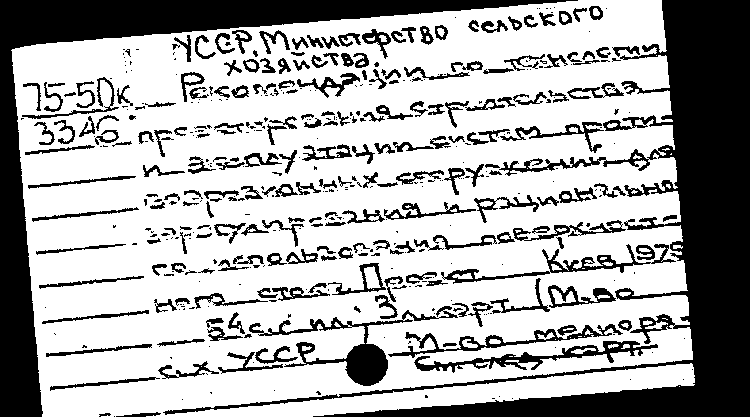 УССР. Министерство сельского
хозяйства.
75-5Dк Рекомендации по технологии
3346 проектирования, строительства
и эксплуатации систем проти-
воэрозионных сооружений для
зарегулирования и рационально-
го использования поверхност-
ного стока. Проект. Киев, 1975
54 с. с ил.; 3 л. карт. (М-во
с. х. УССР. М-во мелиора-
см. след. карт.